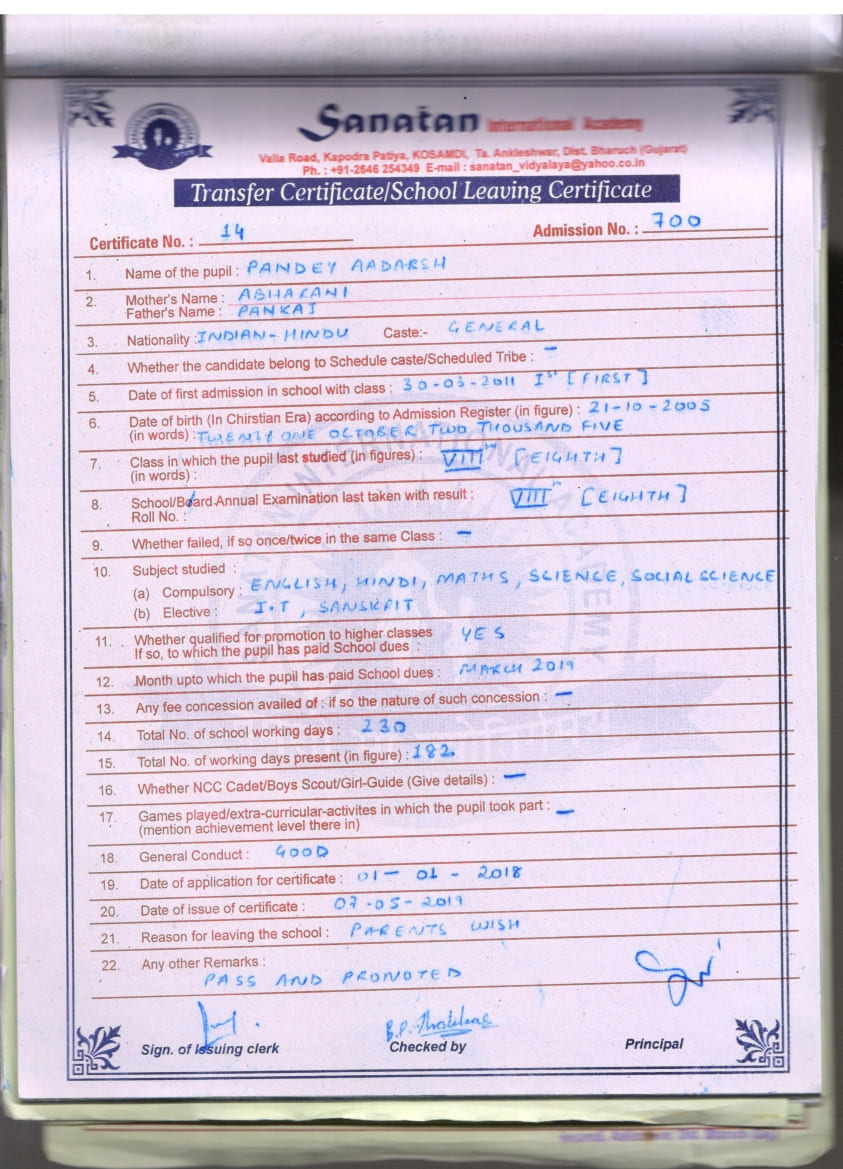 Sanatan International Academy
Valia Road, Kapodra Patiya, KOSAMDI, Ta. Ankleshwar, Dist. Bharuch (Gujarat)
Ph. : +91-2646 254349 E-mail : sanatan_vidyalaya@yahoo.co.in
Transfer Certificate/School Leaving Certificate
Certificate No. : 14 Admission No. : 700
1. Name of the pupil : PANDEY AADARSH
2. Mother's Name : ABHARANI
Father's Name : PANKAJ
3. Nationality : INDIAN-HINDU Caste:- GENERAL
4. Whether the candidate belong to Schedule caste/Scheduled Tribe : –
5. Date of first admission in school with class : 30-03-2011 Ist [FIRST]
6. Date of birth (In Chirstian Era) according to Admission Register (in figure) : 21-10-2005
(in words) : TWENTY ONE OCTOBER TWO THOUSAND FIVE
7. Class in which the pupil last studied (in figures) : VIIIth [EIGHTH]
(in words) :
8. School/Board Annual Examination last taken with result : VIIIth [EIGHTH]
Roll No. :
9. Whether failed, if so once/twice in the same Class : –
10. Subject studied :
(a) Compulsory : ENGLISH, HINDI, MATHS, SCIENCE, SOCIAL SCIENCE
(b) Elective : I.T, SANSKRIT
11. Whether qualified for promotion to higher classes YES
If so, to which the pupil has paid School dues :
12. Month upto which the pupil has paid School dues : MARCH 2019
13. Any fee concession availed of : if so the nature of such concession : –
14. Total No. of school working days : 230
15. Total No. of working days present (in figure) : 182
16. Whether NCC Cadet/Boys Scout/Girl-Guide (Give details) : –
17. Games played/extra-curricular-activites in which the pupil took part : –
(mention achievement level there in)
18. General Conduct : GOOD
19. Date of application for certificate : 01-01-2018
20. Date of issue of certificate : 07-05-2019
21. Reason for leaving the school : PARENTS WISH
22. Any other Remarks :
PASS AND PROMOTED
Sign. of Issuing clerk Checked by Principal